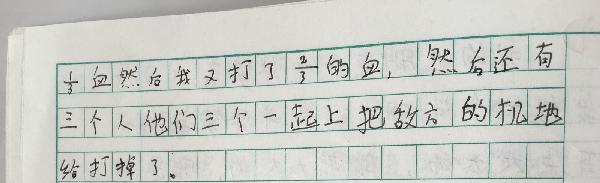 1/3血然后我又打了2/3的血，然后还有
三个人他们三个一起上把敌方的机地
给打掉了。